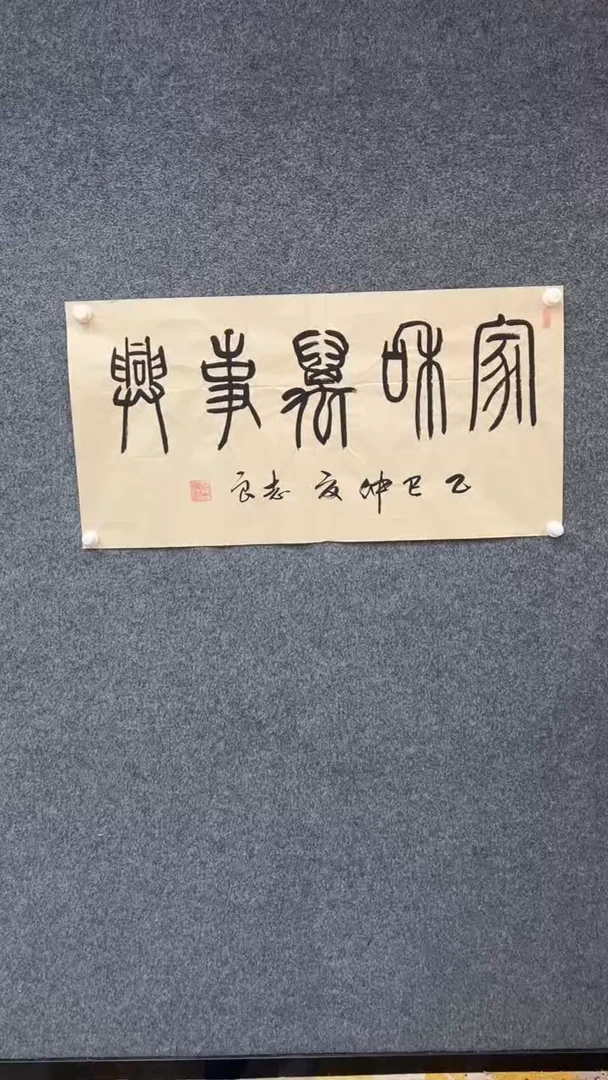 家和萬事興
乙巳仲夏志良